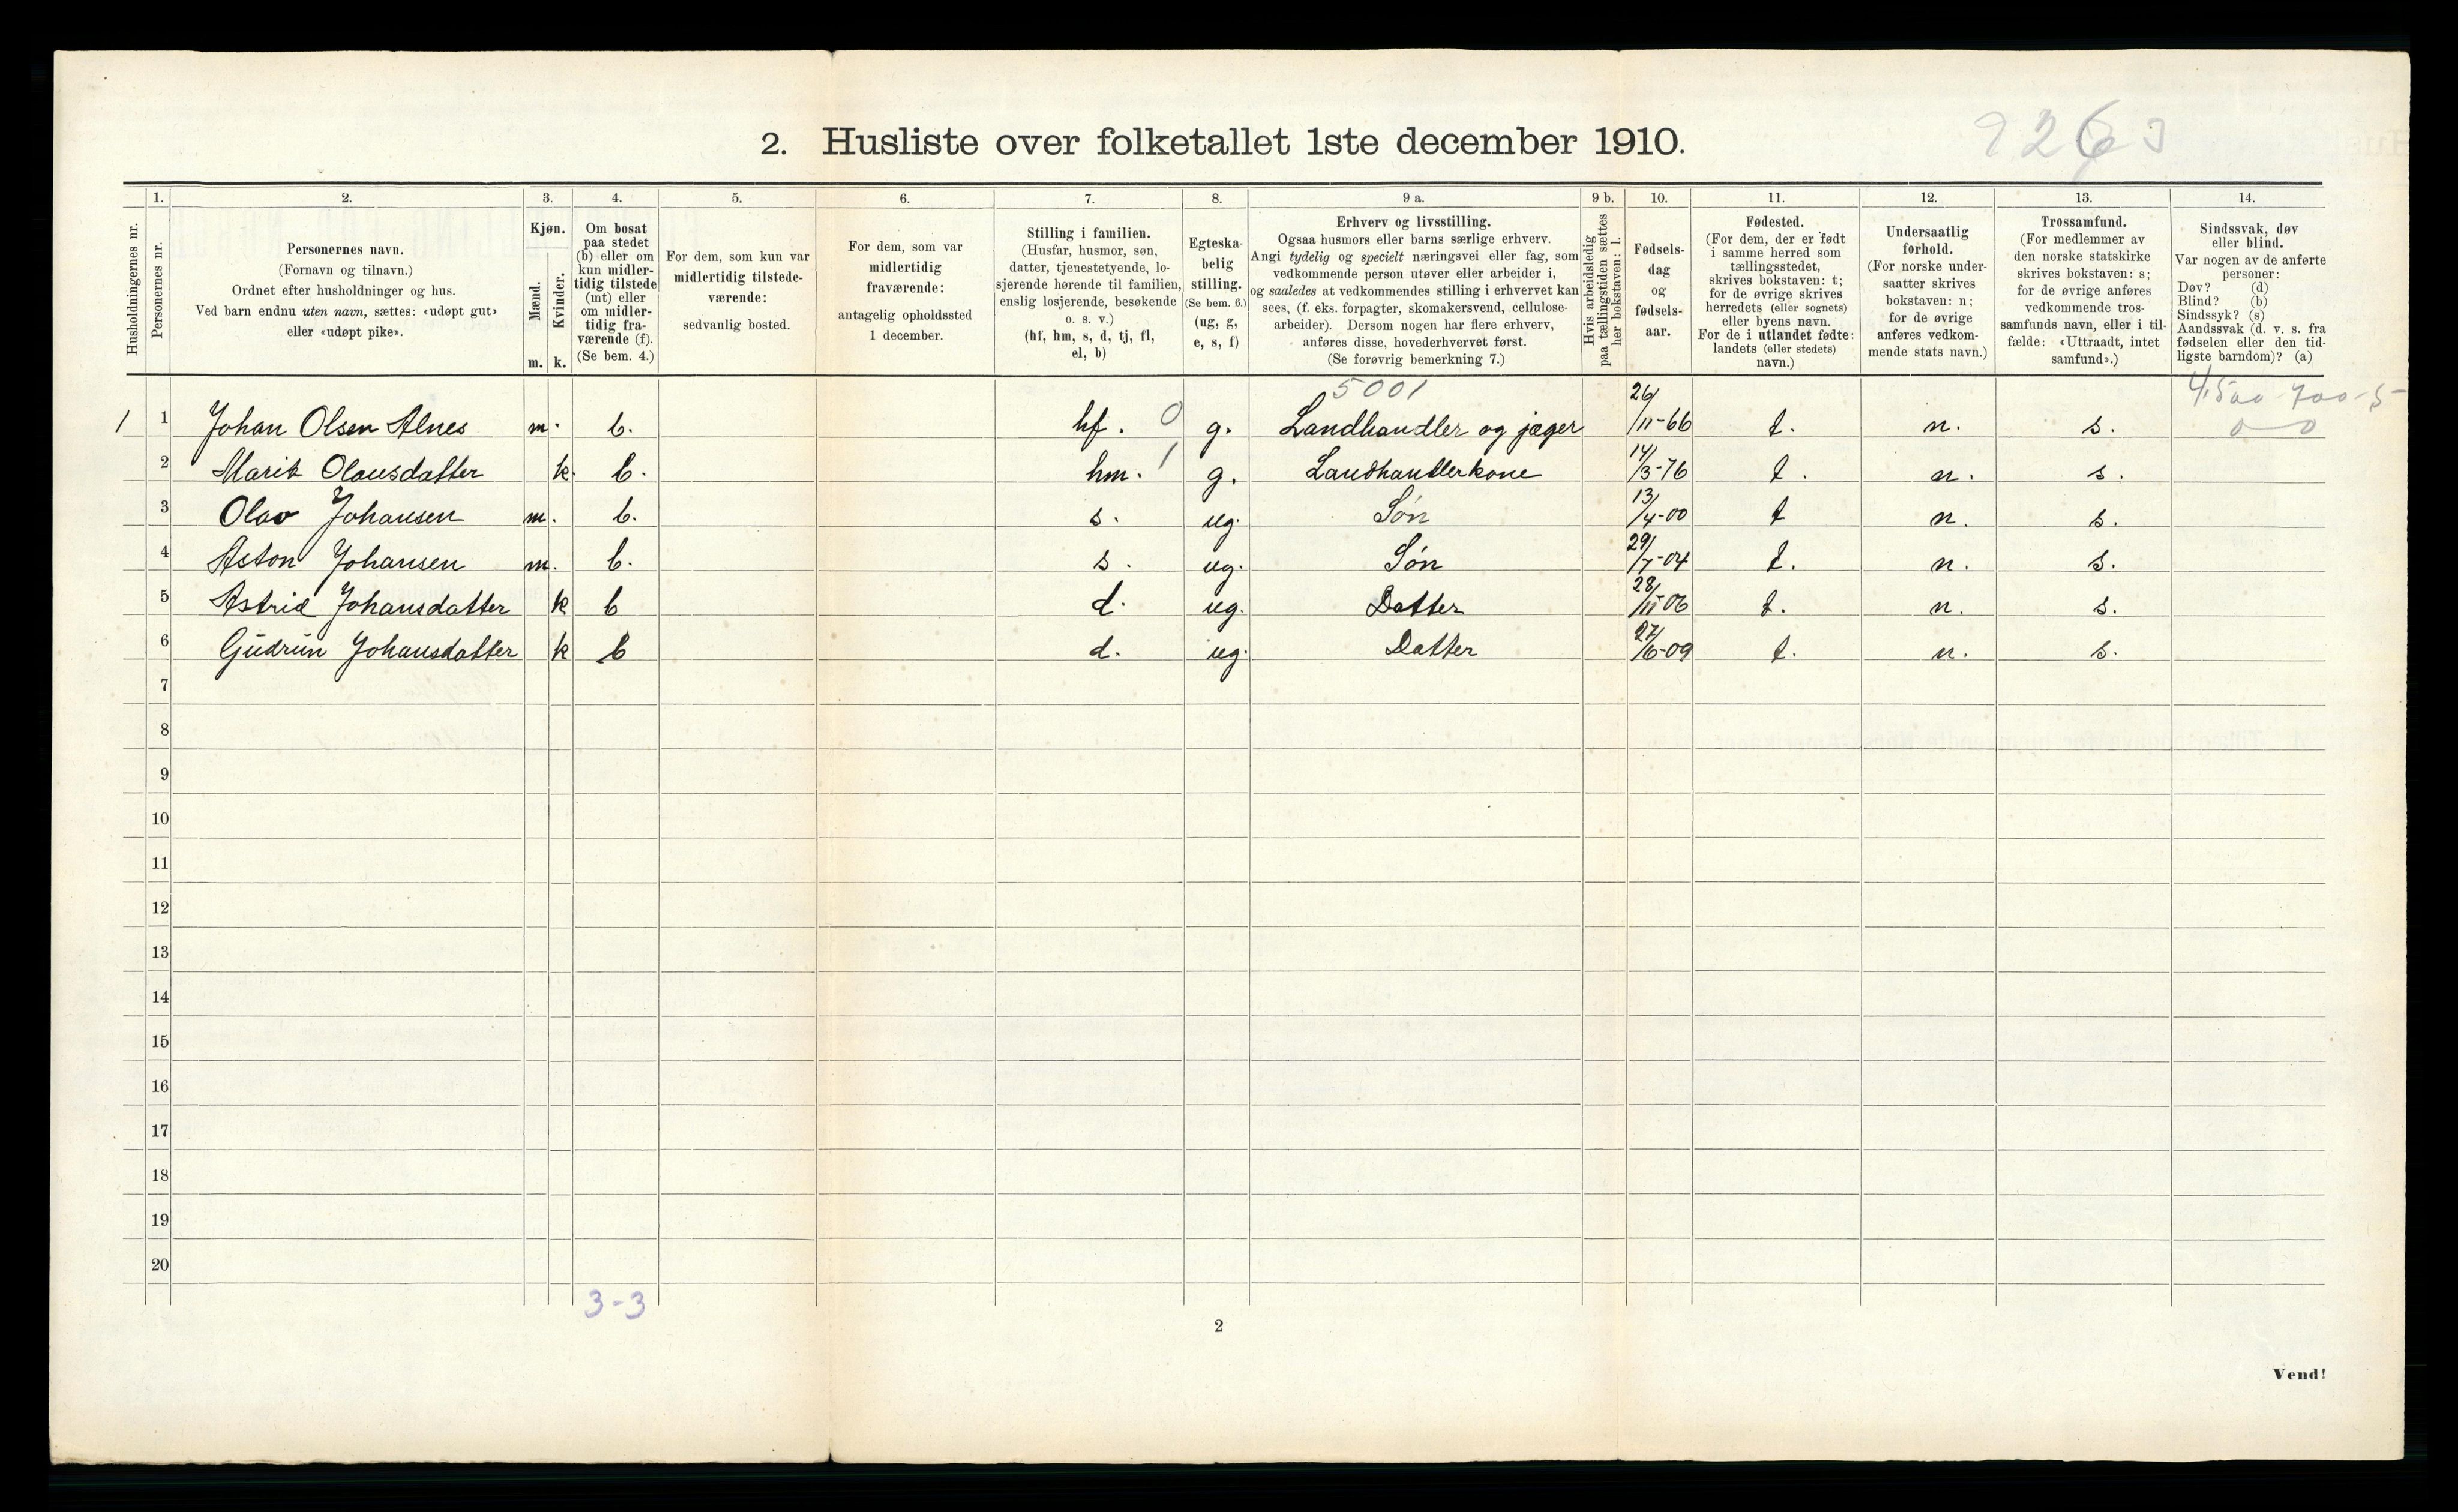 2. Husliste over folketallet 1ste december 1910.
Husholdningernes nr.
1.
Personernes nr.
2.
Personernes navn.
(Fornavn og tilnavn.)
Ordnet efter husholdninger og hus.
Ved barn endnu uten navn, sættes: «udøpt gut»
eller «udøpt pike».
3.
Kjøn.
Mænd.
Kvinder.
m. k.
4.
Om bosat
paa stedet
(b) eller om
kun midler-
tidig tilstede
(mt) eller
om midler-
tidig fra-
værende (f).
(Se bem. 4.)
5.
For dem, som kun var
midlertidig tilstede-
værende:
sedvanlig bosted.
6.
For dem, som var
midlertidig
fraværende:
antagelig opholdssted
1 december.
7.
Stilling i familien.
(Husfar, husmor, søn,
datter, tjenestetyende, lo-
sjerende hørende til familien,
enslig losjerende, besøkende
o. s. v.)
(hf, hm, s, d, tj, fl,
el, b)
8.
Egteska-
belig
stilling.
(Se bem. 6.)
(ug, g,
e, s, f)
9 a.
Erhverv og livsstilling.
Ogsaa husmors eller barns særlige erhverv.
Angi tydelig og specielt næringsvei eller fag, som
vedkommende person utøver eller arbeider i,
og saaledes at vedkommendes stilling i erhvervet kan
sees, (f. eks. forpagter, skomakersvend, cellulose-
arbeider). Dersom nogen har flere erhverv,
anføres disse, hovederhvervet først.
(Se forøvrig bemerkning 7.)
9 b.
Hvis arbeidsledig
paa tællingstiden sættes
her bokstaven: l.
10.
Fødsels-
dag
og
fødsels-
aar.
11.
Fødested.
(For dem, der er født
i samme herred som
tællingsstedet,
skrives bokstaven: t;
for de øvrige skrives
herredets (eller sognets)
eller byens navn.
For de i utlandet fødte:
landets (eller stedets)
navn.)
12.
Undersaatlig
forhold.
(For norske under-
saatter skrives
bokstaven: n;
for de øvrige
anføres vedkom-
mende stats navn.)
13.
Trossamfund.
(For medlemmer av
den norske statskirke
skrives bokstaven: s;
for de øvrige anføres
vedkommende tros-
samfunds navn, eller i til-
fælde: «Uttraadt, intet
samfund».)
14.
Sindssvak, døv
eller blind.
Var nogen av de anførte
personer:
Døv? (d)
Blind? (b)
Sindssyk? (s)
Aandssvak (d. v. s. fra
fødselen eller den tid-
ligste barndom)? (a)
5001
4,500-700-5-
1 1 Johan Olsen Alnes m. b. hf. 0 g. Landhandler og jæger 26/11-66 t. n. s. 0-0
2 Marit Olausdatter k. b. hm. 1 g. Landhandlerkone 14/3-76 t. n. s.
3 Olav Johansen m. b. s. ug. Søn 13/4-00 t n. s.
4 Aston Johansen m. b. s. ug. Søn 29/7-04 t. n. s.
5 Astrid Johansdatter k b d. ug. Datter 28/11-06 t. n. s.
6 Gudrun Johansdatter k b d. ug. Datter 27/6-09 t. n. s.
7
8
9
10
11
12
13
14
15
16
17
18
19
20
3-3
2
Vend!